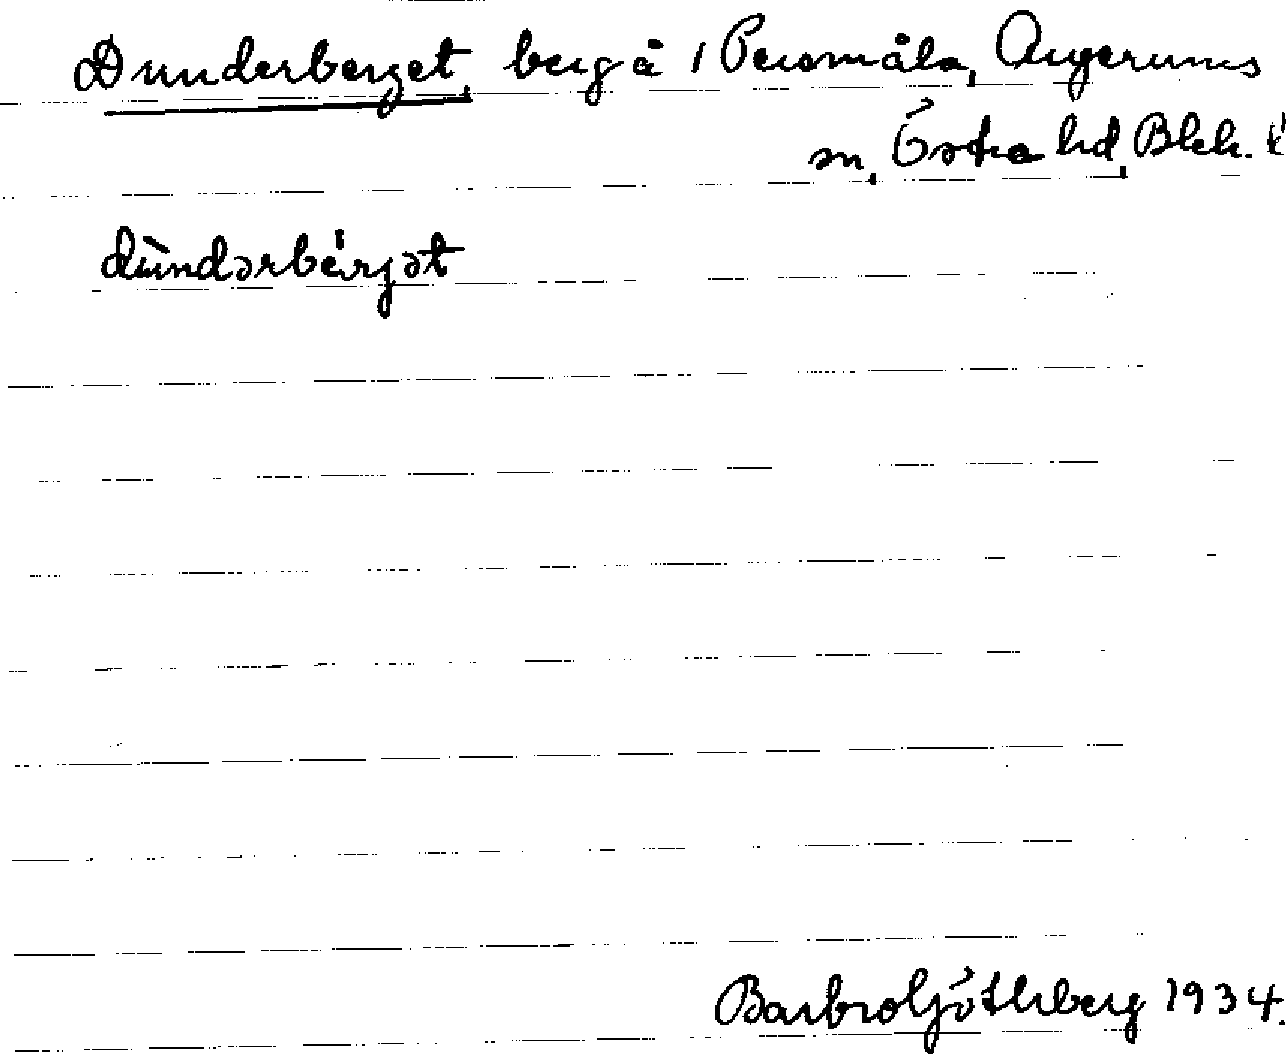 Dunderberget, berg å 1 Persmåla, Augerums
sn, Östra hd, Blek. l
dùndərbérgət
Barbro Göthberg 1934.